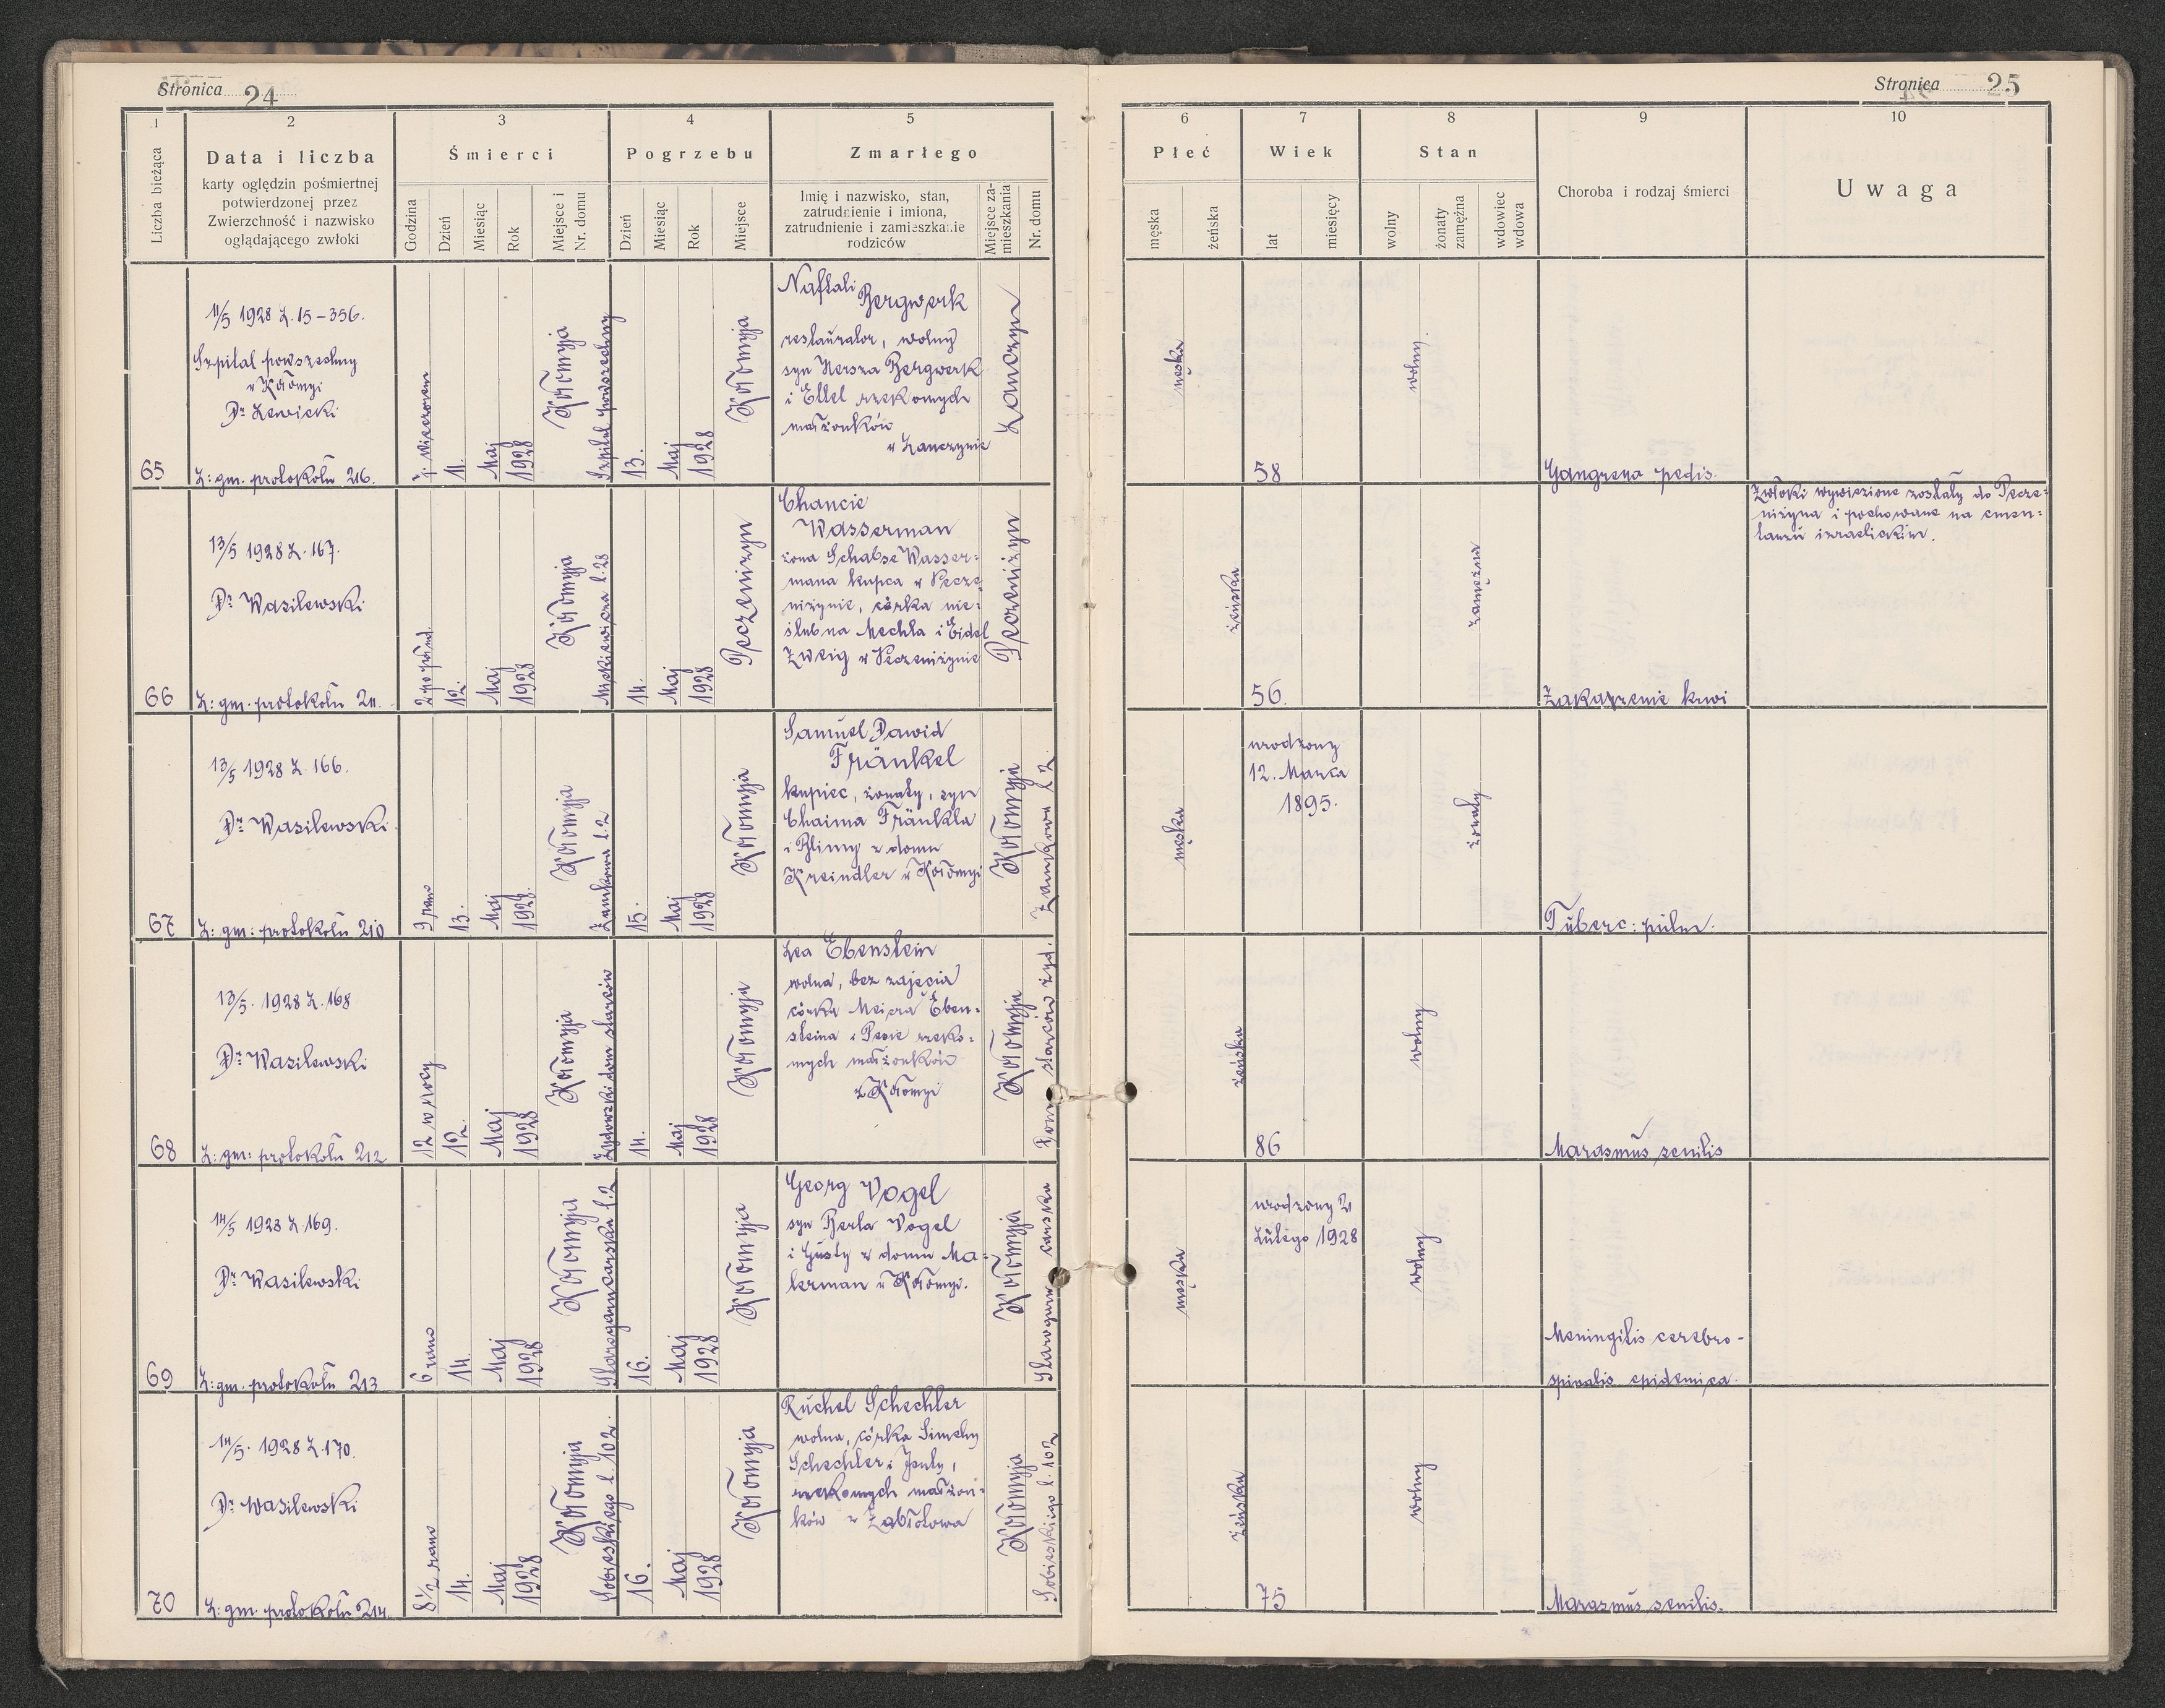 Stronica 24
1
2
3
4
5
Liczba bieżąca
Data i liczba
karty oględzin pośmiertnej
potwierdzonej przez
Zwierzchność i nazwisko
oglądającego zwłoki
Śmierci
Godzina
Dzień
Miesiąc
Rok
Miejsce i
Nr. domu
Pogrzebu
Dzień
Miesiąc
Rok
Miejsce
Zmarłego
Imię i nazwisko, stan,
zatrudnienie i imiona,
zatrudnienie i zamieszkanie
rodziców
Miejsce za-
mieszkania
Nr. domu
65
11/5 1928 L. 15-356.
Szpital powszechny
w Kołomyi
Dr. Lewicki
L: gm. protokołu 216.
7. wieczorem
11.
Maj
1928
Kołomyja
Szpital powszechny
13.
Maj
1928
Kołomyja
Naftali Bergwerk
restaurator, wolny
syn Hersza Bergwerk
i Ettel rzekomych
małżonków
w Lanczynie
Lanczyn
66
13/5 1928 L. 167.
Dr. Wasilewski
L: gm. protokołu 211.
2 po połud.
12.
Maj
1928
Kołomyja
Mickiewicza l. 28
14.
Maj
1928
Peczeniżyn
Chancie
Wasserman
żona Schabse Wasser=
mana kupca w Pecze
niżynie, córka nie=
ślubna Mechla i Eidel
Zweig w Peczeniżynie
Peczeniżyn
67
13/5 1928 L. 166.
Dr. Wasilewski
L: gm: protokołu 210
9 rano
13.
Maj
1928.
Kołomyja
Zamkowa l. 2
15.
Maj
1928
Kołomyja
Samuel Dawid
Fränkel
kupiec, żonaty, syn
Chaima Fränkla
i Blimy z domu
Kreindler w Kołomyi
Kołomyja
Zamkowa l. 2.
68
13/5. 1928 L. 168
Dr. Wasilewski
L: gm: protokołu 212
12 w nocy
12.
Maj
1928
Kołomyja
Żydowski dom starców
14.
Maj
1928
Kołomyja
Lea Ebenstein
wolna, bez zajęcia
córka Meiera Eben-
steina i Pesie rzeko-
mych małżonków
z Kołomyi
Kołomyja
Dom starców żyd.
69
14/5 1928 L 169.
Dr. Wasilewski
L: gm. protokołu 213
6 rano
14.
Maj
1928
Kołomyja
Starogarncarska l. 2
16.
Maj
1928
Kołomyja
Georg Vogel
syn Berla Vogel
i Gusty z domu Ma=
lerman w Kołomyi.
Kołomyja
70
14/5. 1928 L. 170.
Dr. Wasilewski
L: gm. protokołu 214.
8 1/2 rano
14.
Maj
1928
Kołomyja
Sobieskiego l 102.
16.
Maj
1928
Kołomyja
Ruchel Schechter
wolna, córka Simchy
Schechter i Jenty,
rzekomych małżon-
ków z Zabłotowa
Kołomyja
Sobieskiego l. 102
Stronica 25
6
7
8
9
10
Płeć
męska
żeńska
Wiek
lat
miesięcy
Stan
wolny
żonaty
zamężna
wdowiec
wdowa
Choroba i rodzaj śmierci
Uwaga
męska
58
wolny
Gangrena pedis.
żeńska
56.
zamężna
Zakażenie krwi
Zwłoki wywiezione zostały do Pecze=
niżyna i pochowane na cmen=
tarzu izraelickim.
męska
urodzony
12. Marca
1895.
żonaty
Tuberc: pulm.
żeńska
86
wolny
Marasmus senilis
męska
urodzony 21
Lutego 1928
wolny
Meningitis cerebro-
spinalis epidemica
żeńska
75
wolny
Marasmus senilis.